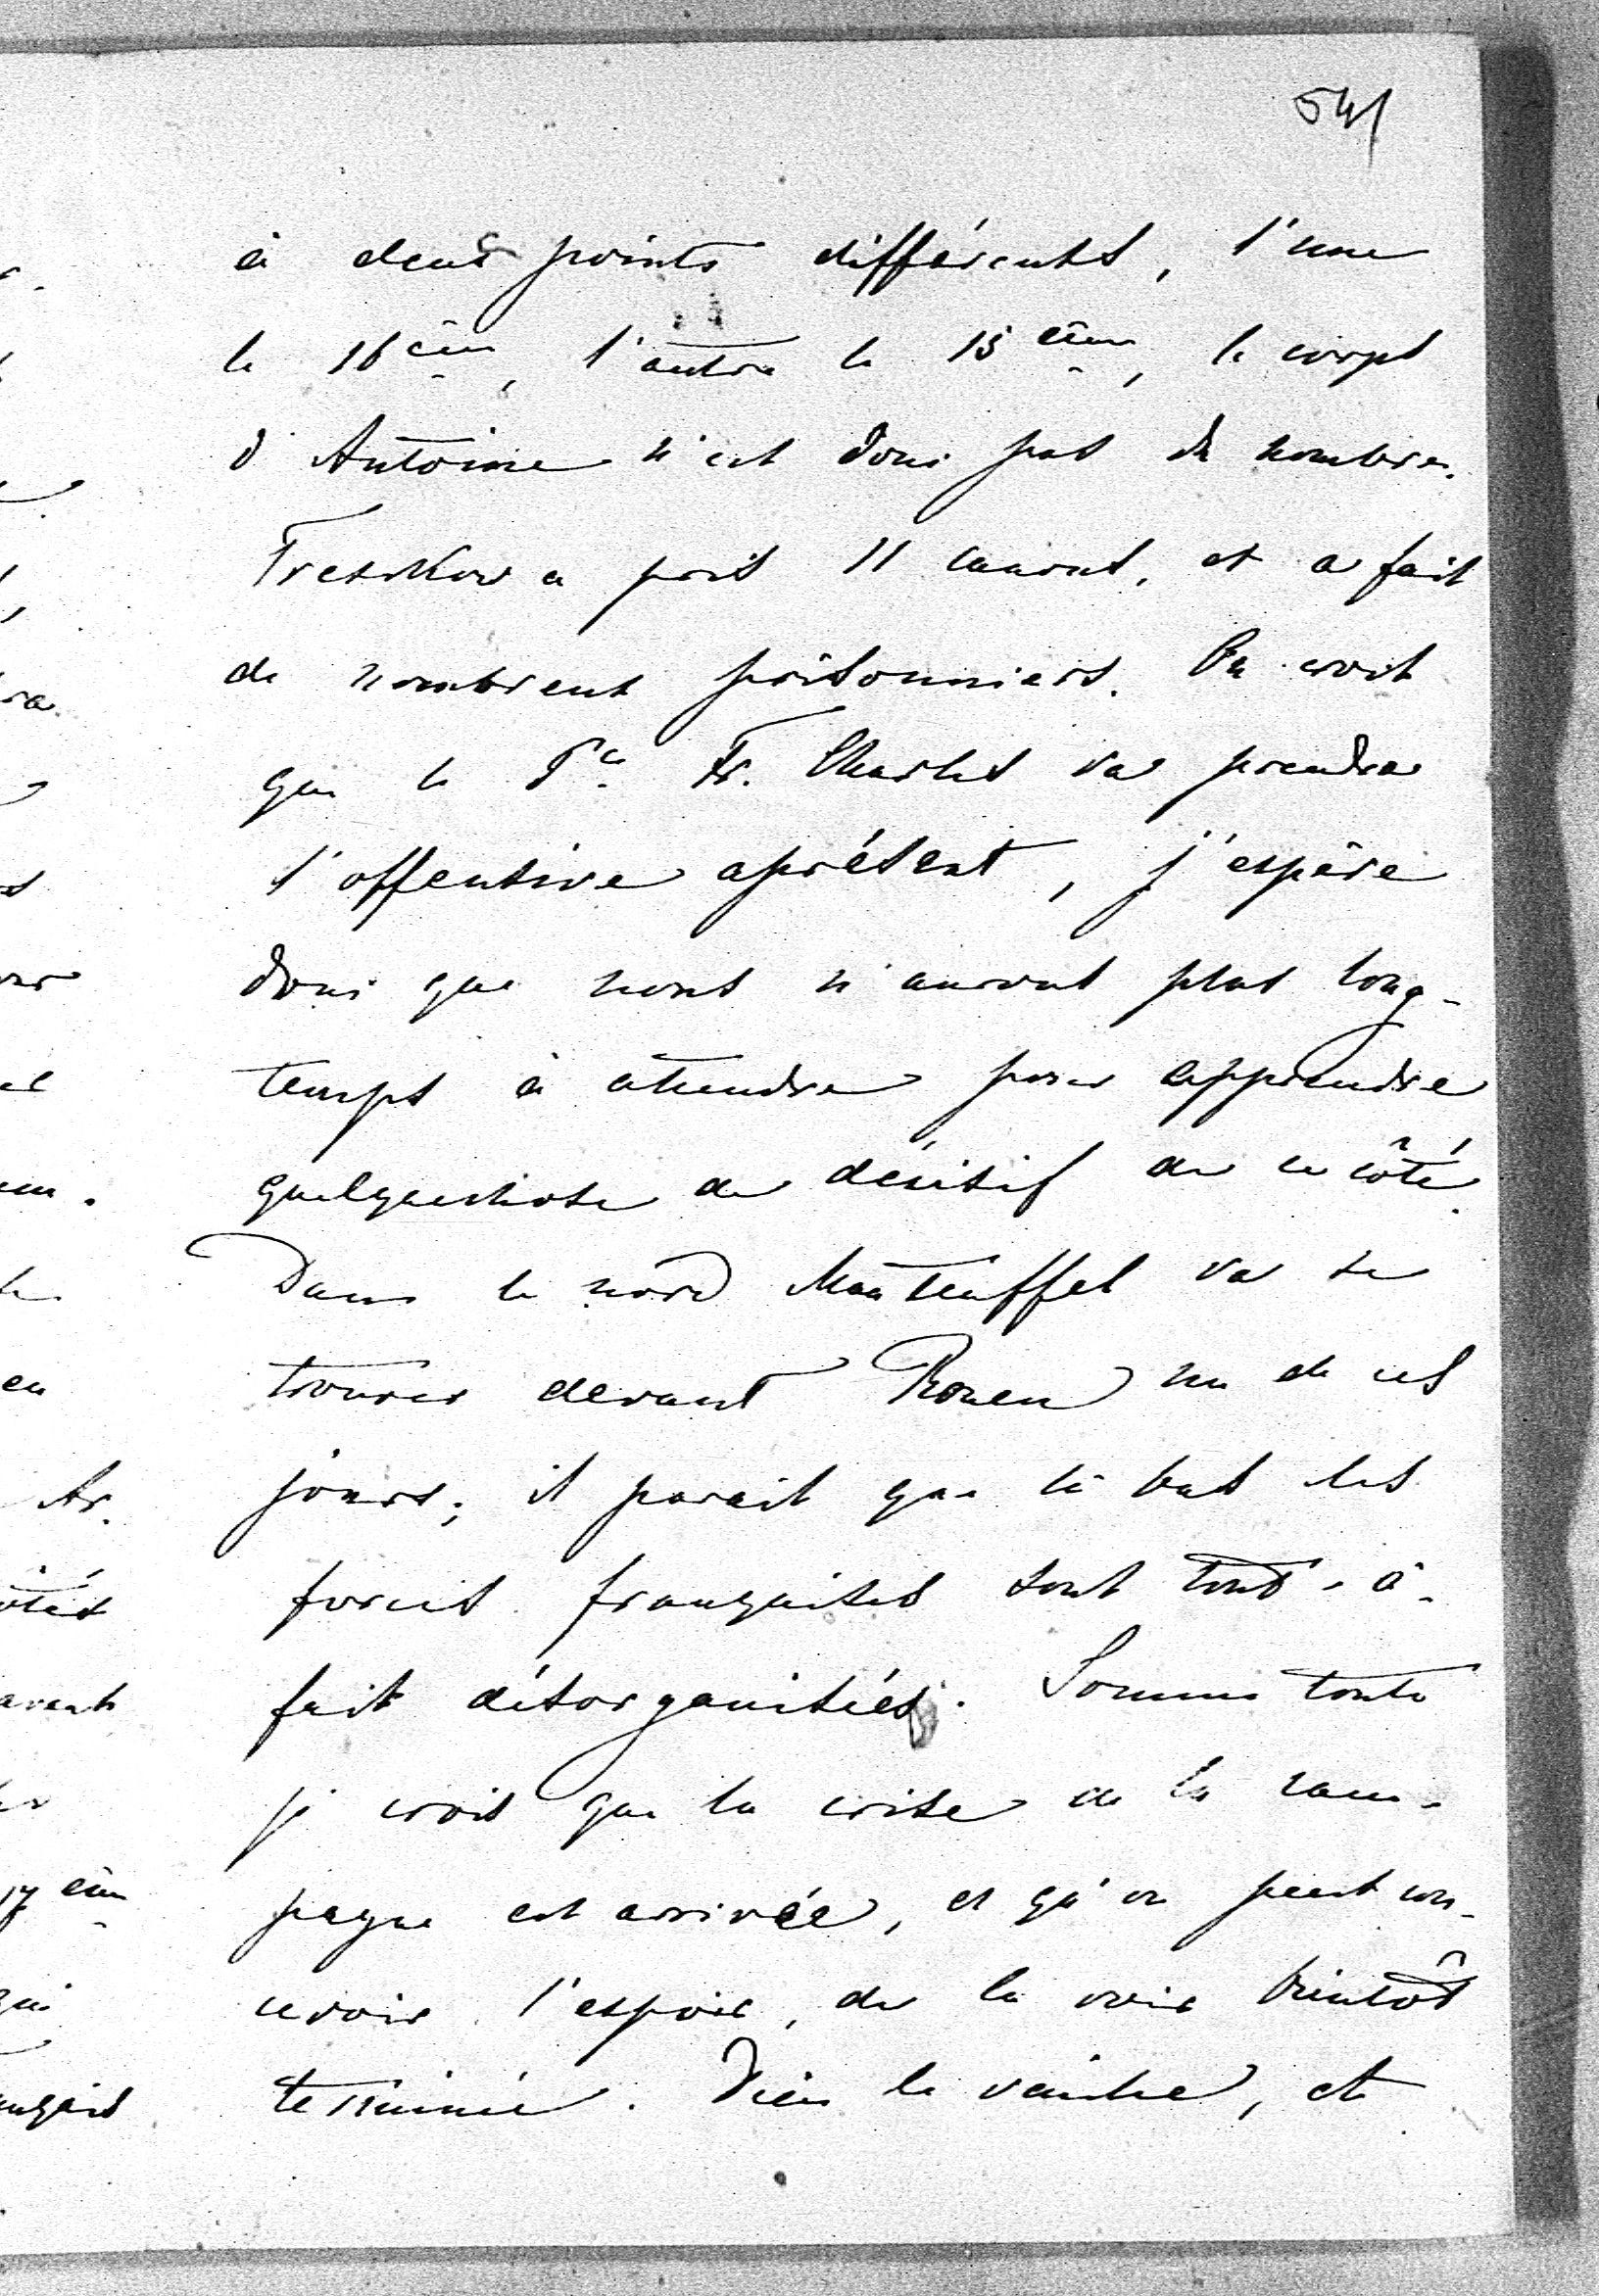 541
à deux points différents, l'une
le 16ème, l'autre le 15ème, le corps
d'Antoine n'est donc pas du nombre.
Treskow a pris 11 canons, et a fait
de nombreux prisonniers. On croit
que le Pce Fr. Charles va prendre
l'offensive aprésent, j'espère
donc que nous n'aurons plus long-
temps à attendre pour apprendre
quelquechose de décisif de ce côté.
Dans le nord Manteuffel va se
trouver devant Rouen un de ces
jours; il parait que là bas les
forces françaises sont tout-à-
fait désorganisées. Somme toute
je crois que la crise de la cam-
pagne est arrivée, et qu'on peut con-
cevoir l'espoir, de la voir bientôt
terminée. Dieu le veuille, et